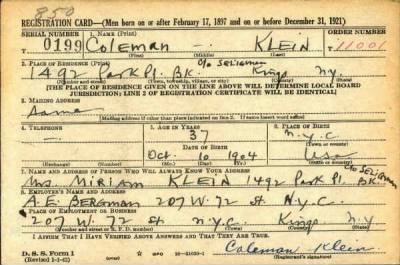 850
REGISTRATION CARD—(Men born on or after February 17, 1897 and on or before December 31, 1921)
SERIAL NUMBER 1. NAME (Print) ORDER NUMBER
0199 Coleman — KLEIN 11001
(First) (Middle) (Last)
2. PLACE OF RESIDENCE (Print) c/o Seligman
1492 Park Pl. BK. Kings N.Y.
(Number and street) (Town, township, village, or city) (County) (State)
[THE PLACE OF RESIDENCE GIVEN ON THE LINE ABOVE WILL DETERMINE LOCAL BOARD
JURISDICTION; LINE 2 OF REGISTRATION CERTIFICATE WILL BE IDENTICAL]
3. MAILING ADDRESS
Same
[Mailing address if other than place indicated on line 2. If same insert word same]
4. TELEPHONE 5. AGE IN YEARS 6. PLACE OF BIRTH
— 37 N.Y.C.
DATE OF BIRTH (Town or county)
Oct. 10 1904 USA
(Exchange) (Number) (Mo.) (Day) (Yr.) (State or country)
7. NAME AND ADDRESS OF PERSON WHO WILL ALWAYS KNOW YOUR ADDRESS c/o Seligman
Mrs. Miriam KLEIN 1492 Park Pl. BK.
8. EMPLOYER'S NAME AND ADDRESS
A.E. Bergman 207 W. 72 St N.Y.C.
9. PLACE OF EMPLOYMENT OR BUSINESS
207 W. 72 St N.Y.C. Kings N.Y
(Number and street or R. F. D. number) (Town) (County) (State)
I AFFIRM THAT I HAVE VERIFIED ABOVE ANSWERS AND THAT THEY ARE TRUE.
D. S. S. Form 1 GPO 16—21630-1 Coleman Klein
(Revised 1-1-42) (over) (Registrant's signature)